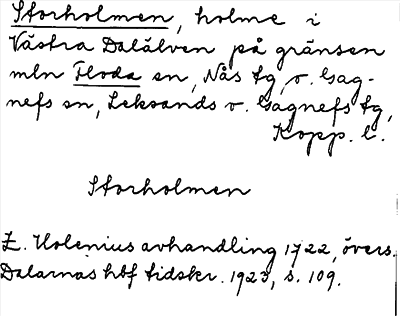 Storholmen, holme i
Västra Dalälven på gränsen
mln Floda sn, Nås tg, o. Gag-
nefs sn, Leksands o. Gagnefs tg,
Kopp. l.
Storholmen
E. Holenius avhandling 1722, övers.
Dalarnas hbf tidskr. 1923, s. 109.